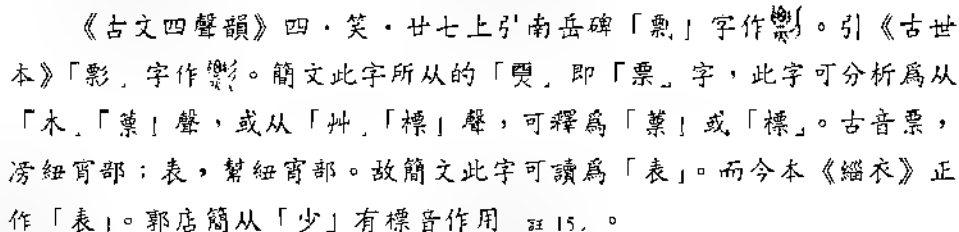 《古文四聲韻》四・笑・廿七上引南岳碑「剽」字作。引《古世
本》「影」字作。簡文此字所从的「㶾」即「票」字,此字可分析爲从
「木」「蔈」聲,或从「艸」「標」聲,可釋爲「蔈」或「標」。古音票,
滂紐宵部;表,幫紐宵部。故簡文此字可讀爲「表」。而今本《緇衣》正
作「表」。郭店簡从「少」有標音作用 註15。